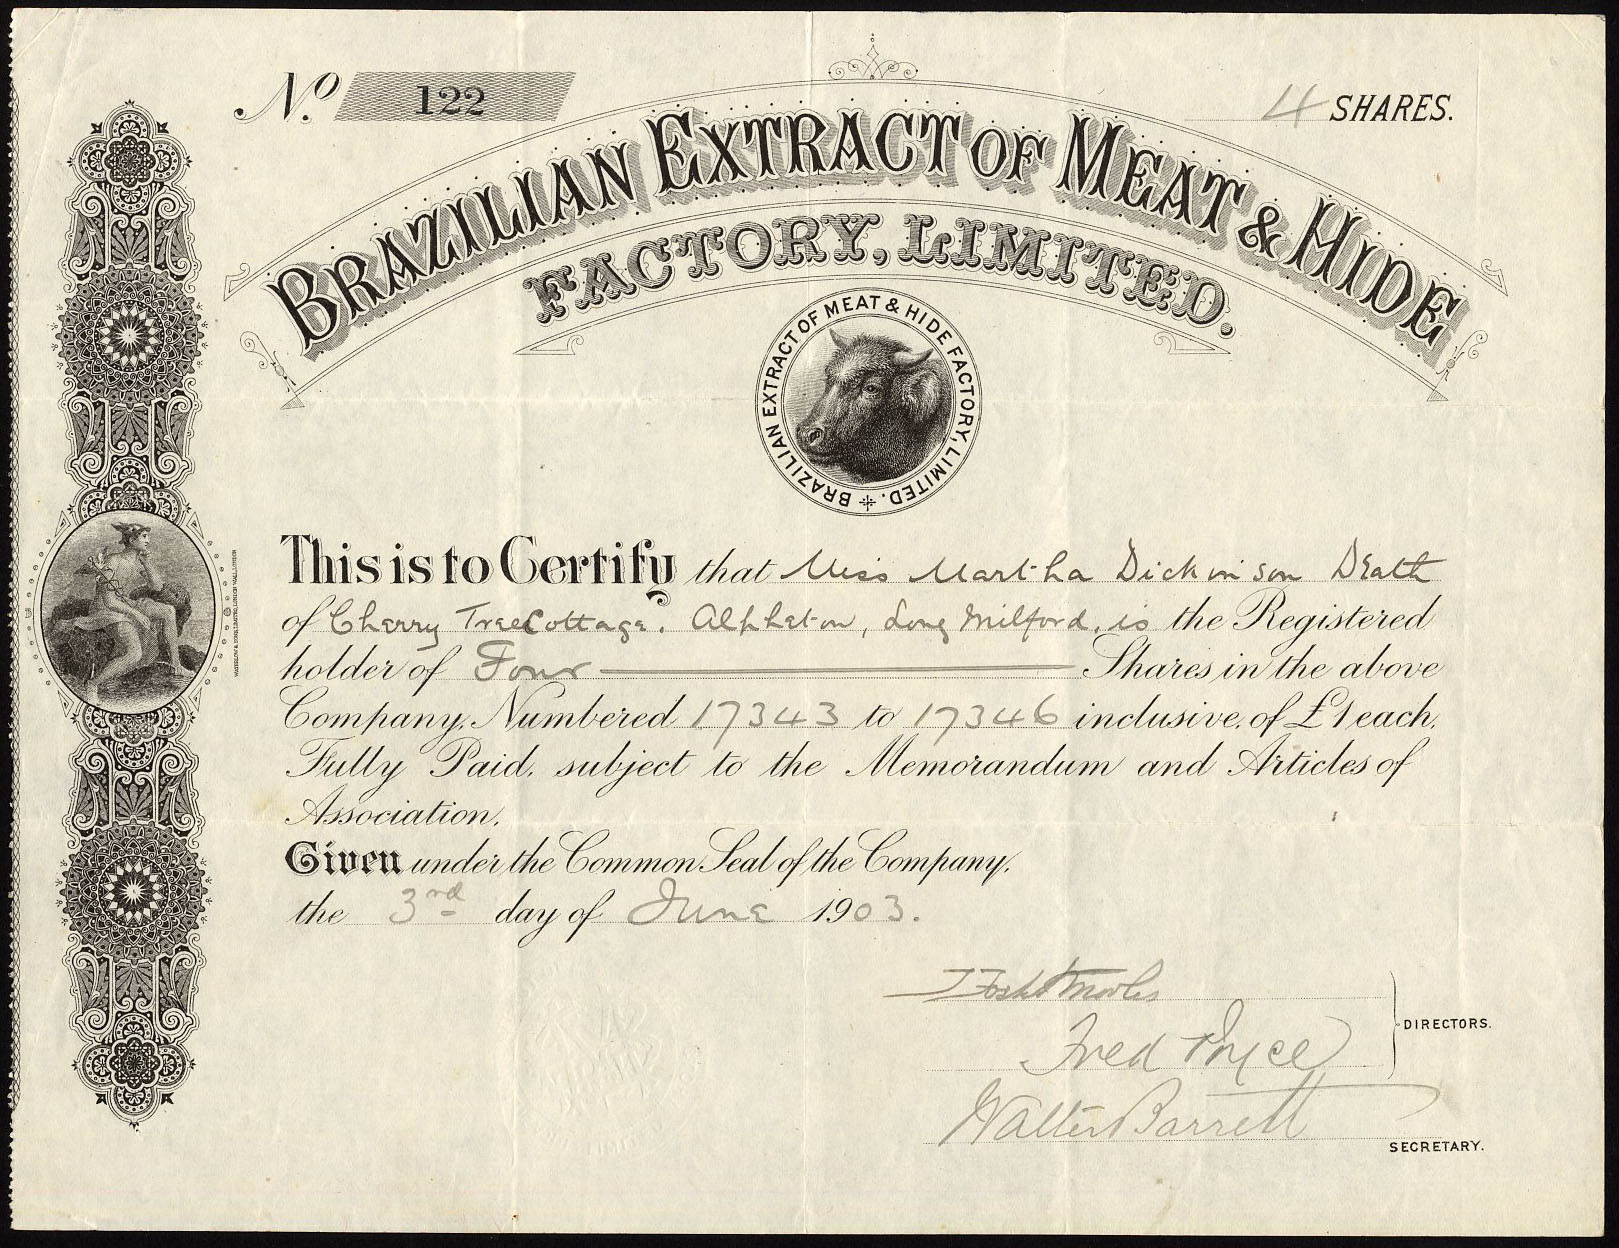 No. 122
4 SHARES.
BRAZILIAN EXTRACT OF MEAT & HIDE
FACTORY, LIMITED.
BRAZILIAN EXTRACT OF MEAT & HIDE FACTORY, LIMITED.
This is to Certify that Miss Martha Dickinson Death
of Cherry Tree Cottage, Alpheton, Long Milford, is the Registered
holder of Four Shares in the above
Company, Numbered 17343 to 17346 inclusive, of £1 each,
Fully Paid, subject to the Memorandum and Articles of
Association.
Given under the Common Seal of the Company,
the 3rd day of June 1903.
DIRECTORS.
Fred Pryce
Walter Barrett
SECRETARY.
WATERLOW & SONS LIMITED, LONDON WALL, LONDON